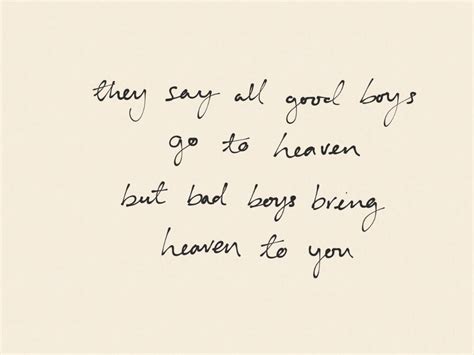 they say all good boys
go to heaven
but bad boys bring
heaven to you